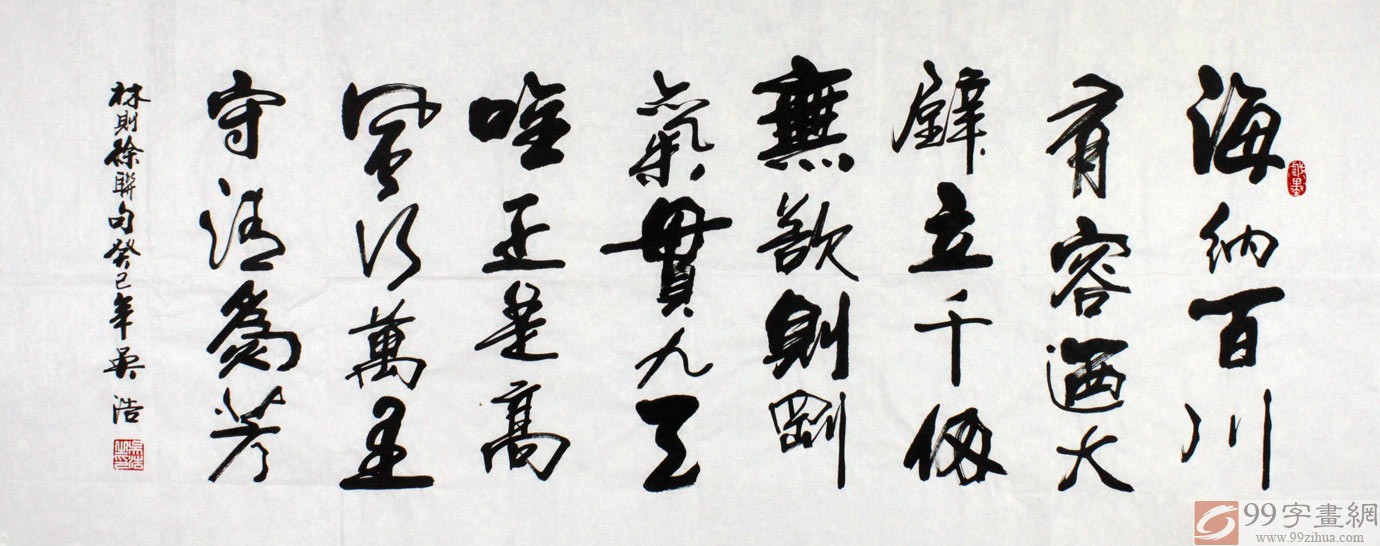 海納百川
有容迺大
壁立千仞
無欲則剛
氣貫九天
唯正是高
風行萬里
守清為芳
林則徐聯句癸巳年吳浩
99字畫網
www.99zihua.com